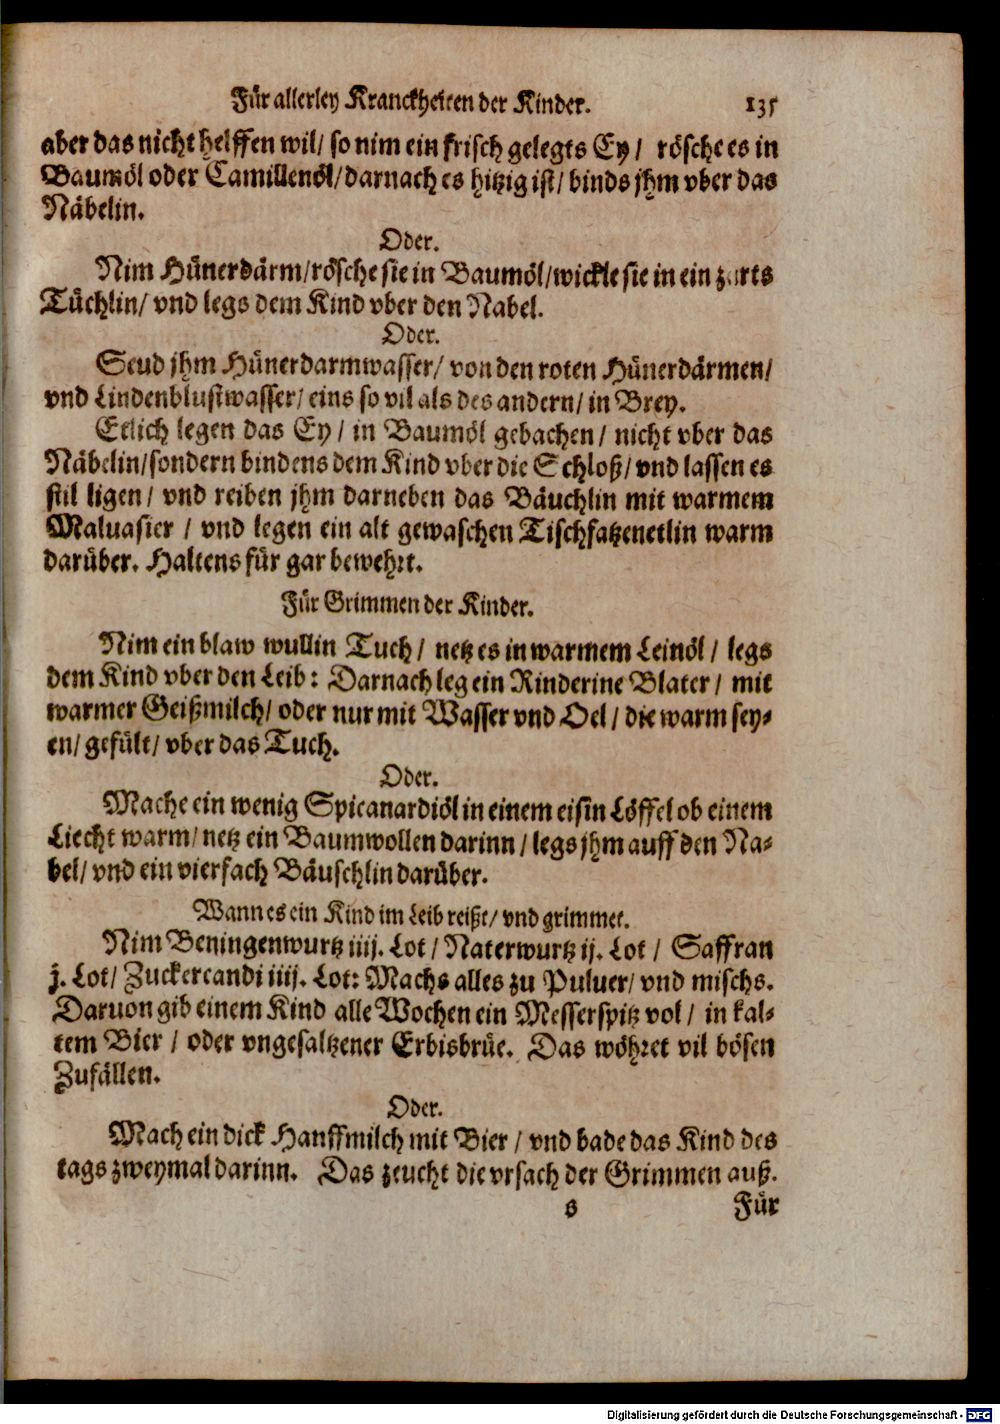 Für allerley Kranckheiten der Kinder. 135
aber das nicht helffen wil/ so nim ein frisch gelegts Ey/ rösche es in
Baumöl oder Camillenöl/ darnach es hitzig ist/ binds jhm vber das
Näbelin.
Oder.
Nim Hünerdärm/ rösche sie in Baumöl/ wickle sie in ein zarts
Tüchlin/ vnd legs dem Kind vber den Nabel.
Oder.
Seud jhm Hünerdarmwasser/ von den roten Hünerdärmen/
vnd Lindenblustwasser/ eins so vil als des andern/ in Brey.
Etlich legen das Ey/ in Baumöl gebachen/ nicht vber das
Näbelin/ sondern bindens dem Kind vber die Schloß/ vnd lassen es
stil ligen/ vnd reiben jhm darneben das Bäuchlin mit warmem
Maluasier/ vnd legen ein alt gewaschen Tischfatzenetlin warm
darüber. Haltens für gar bewehrt.
Für Grimmen der Kinder.
Nim ein blaw wullin Tuch/ netz es in warmem Leinöl/ legs
dem Kind vber den Leib: Darnach leg ein Rinderine Blater/ mit
warmer Geißmilch/ oder nur mit Wasser vnd Oel/ die warm sey-
en/ gefült/ vber das Tuch.
Oder.
Mache ein wenig Spicanardiöl in einem eisin Löffel ob einem
Liecht warm/ netz ein Baumwollen darinn/ legs jhm auff den Na-
bel/ vnd ein vierfach Bäuschlin darüber.
Wann es ein Kind im Leib reißt/ vnd grimmet.
Nim Beningenwurtz iiij. Lot/ Naterwurtz ij. Lot/ Saffran
j. Lot/ Zuckercandi iiij. Lot: Machs alles zu Puluer/ vnd mischs.
Daruon gib einem Kind alle Wochen ein Messerspitz vol/ in kal-
tem Bier/ oder vngesaltzener Erbisbrüe. Das wöhret vil bösen
Zufällen.
Oder.
Mach ein dick Hanffmilch mit Bier/ vnd bade das Kind des
tags zweymal darinn. Das zeucht die vrsach der Grimmen auß.
s Für
Digitalisierung gefördert durch die Deutsche Forschungsgemeinschaft - DFG